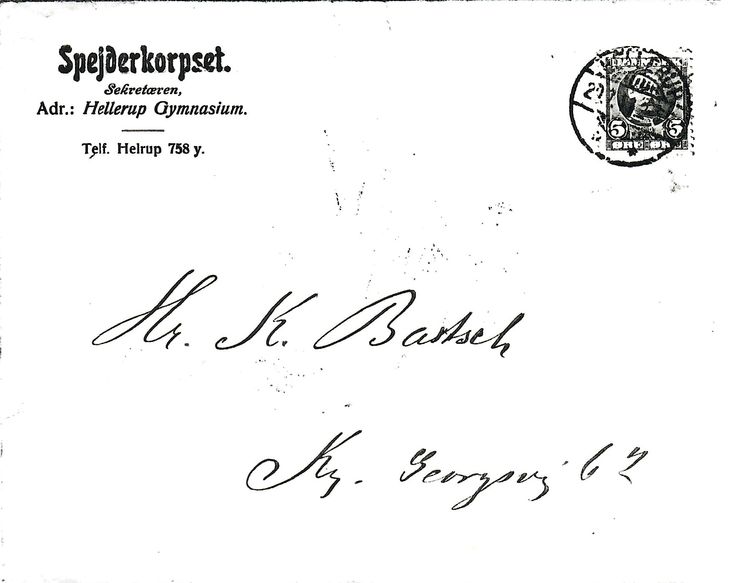 Spejderkorpset.
Sekretæren,
Adr.: Hellerup Gymnasium.
Telf. Helrup 758 y.
5 5
ØRE ØRE
Hr. K. Bartsch
Ky. Georgsvej 62